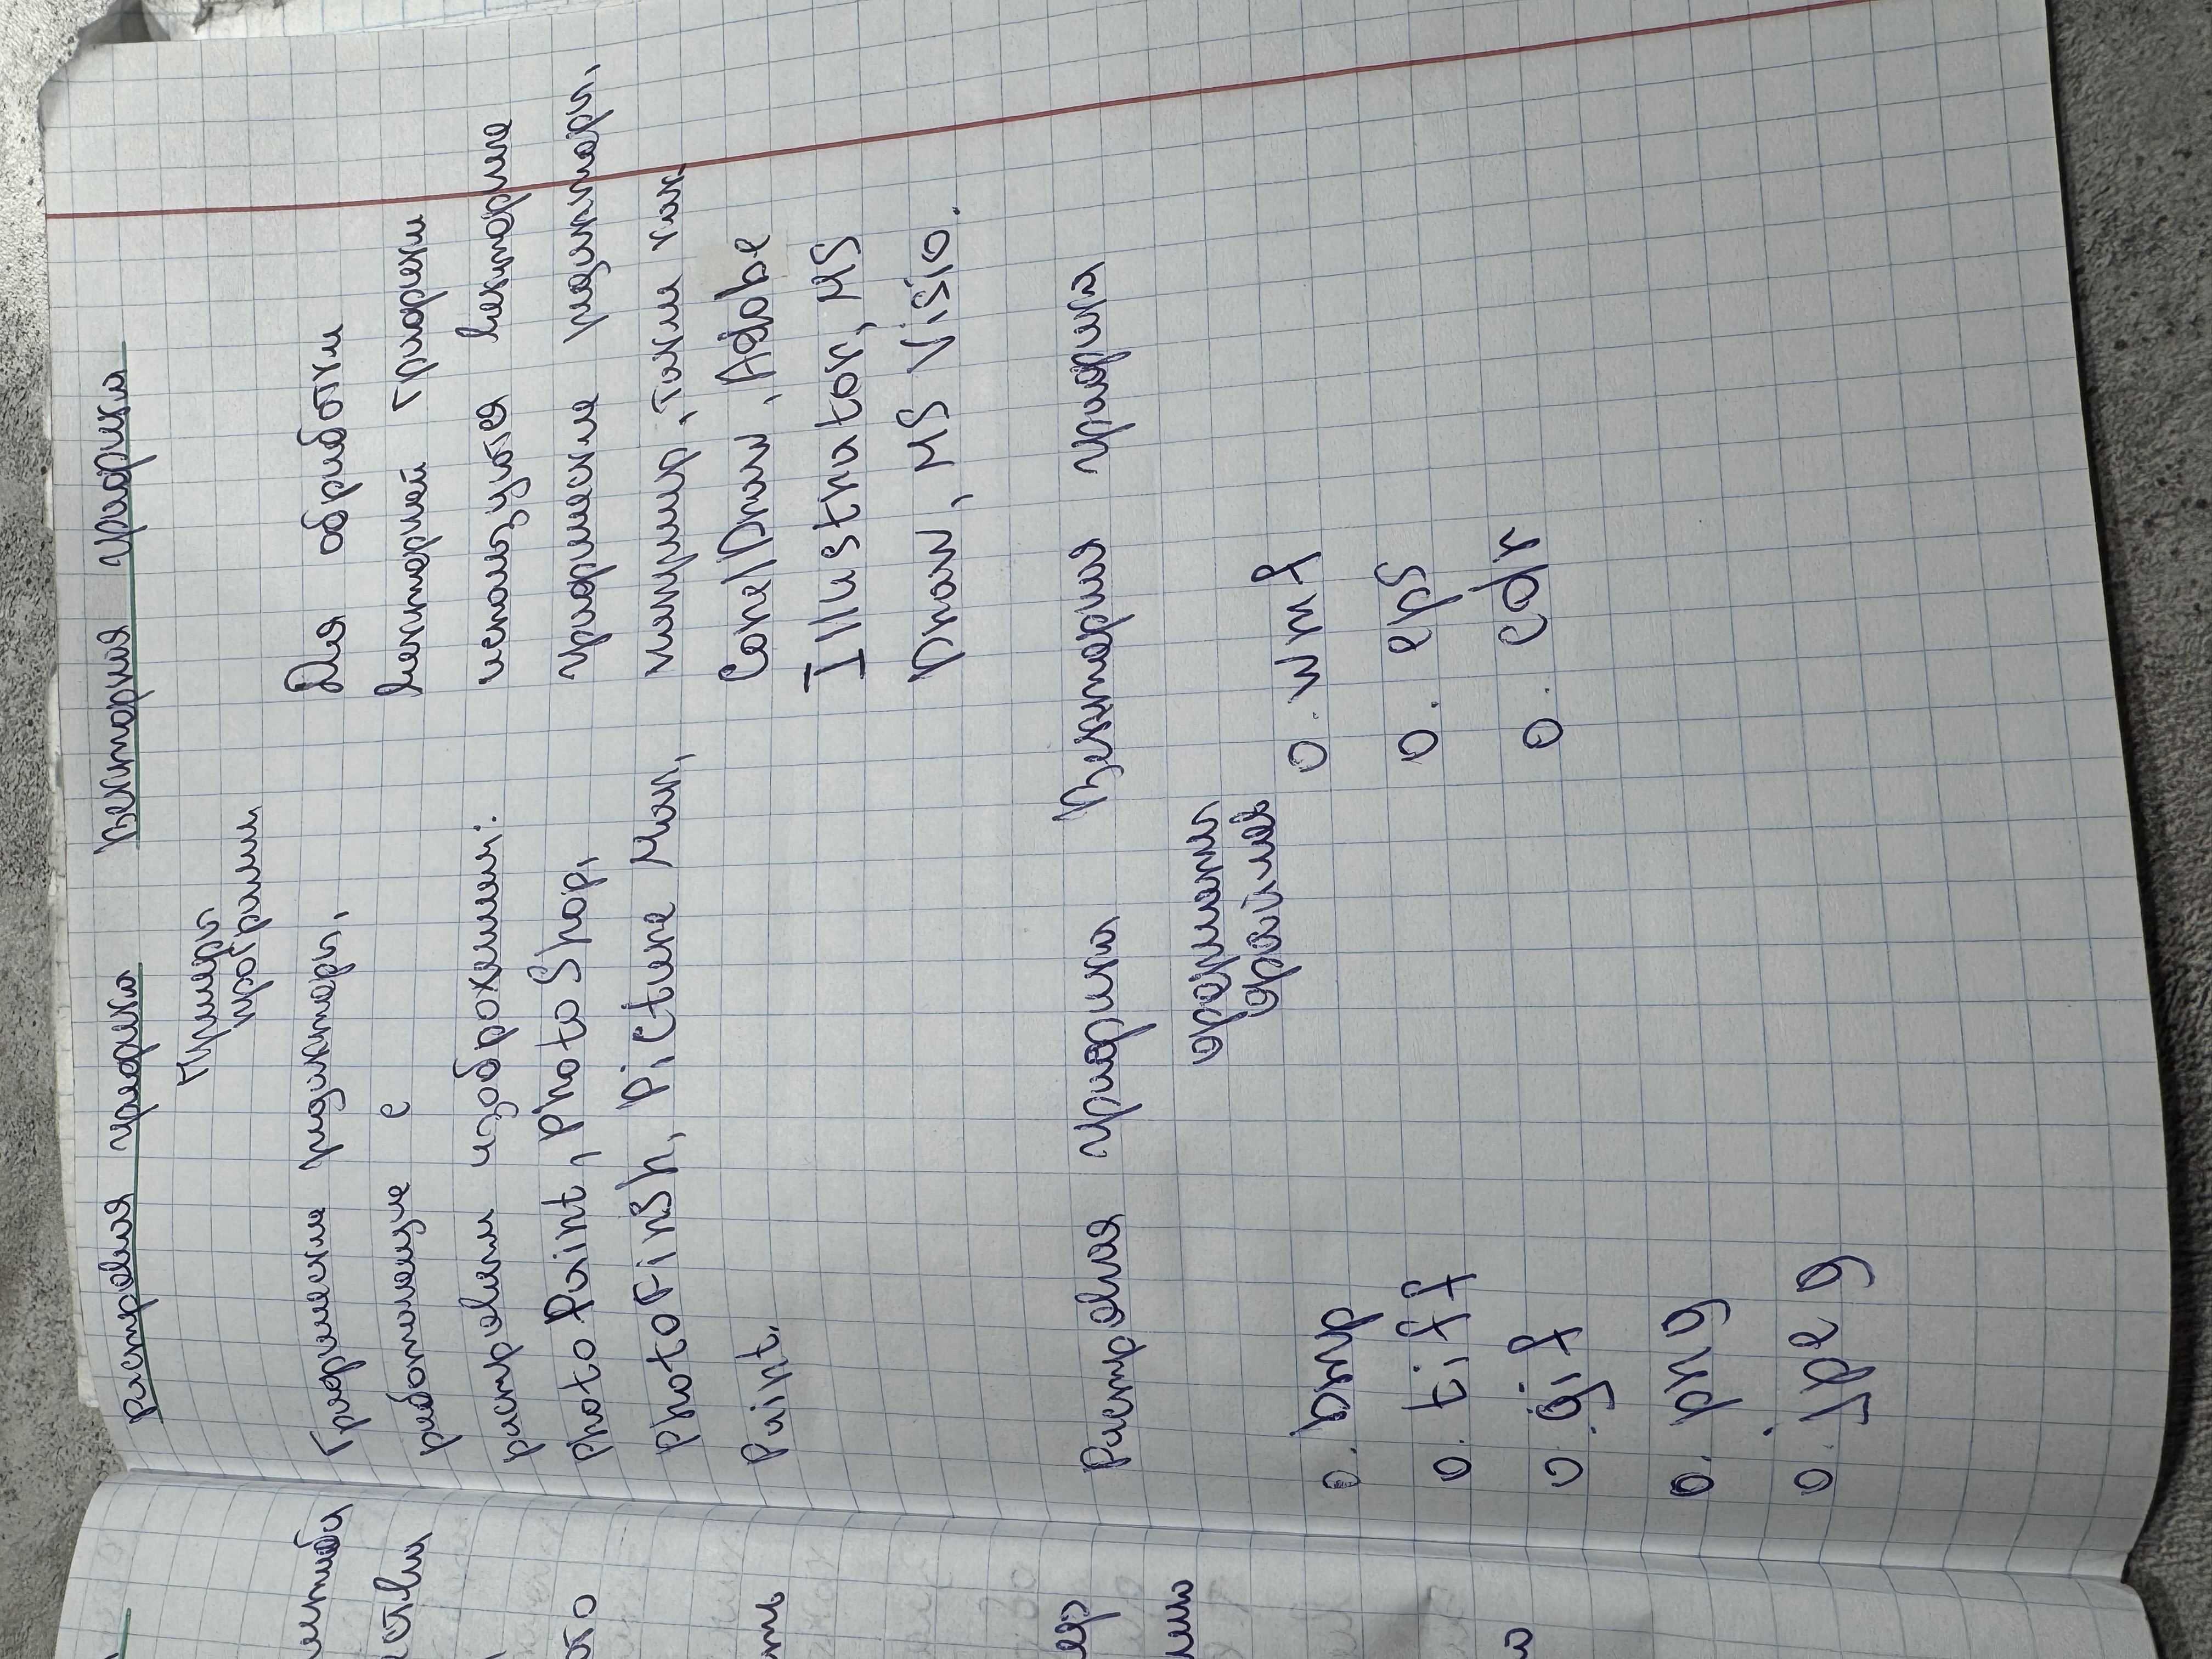 Растровая графика Векторная графика
Примеры
программ
Графические редакторы,
работающие с
растровыми изображениями:
PhotoPaint, PhotoShop,
PhotoFinish, Picture Man,
Paint.
Для обработки
векторной графики
используются векторные
графические редакторы,
например, такие как
CorelDraw, Adobe
Illustrator, MS
Draw, MS Visio.
Растровая графика Векторная графика
форматы
файлов
o .bmp
o .tiff
o .gif
o .png
o .jpeg
o .wmf
o .eps
o .cdr